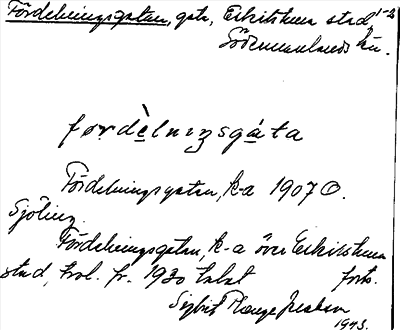 Fördelningsgatan, gata, Eskilstuna stad, 1-2
Södermanlands län.
fo̤rdèlnıŋsgáta
Fördelningsgatan, k-a 1907 O.
Sjöling
Fördelningsgatan, k-a över Eskilstuna
stad, trol. fr. 1930 talet forts.
Sigbrit Plænge Jacobson
1973.